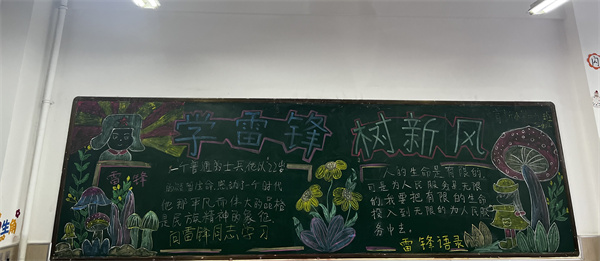 学雷锋 树新风
雷锋
一个普通的士兵他以22岁
的短暂生命感动一个时代
他称平凡而伟大的品格
是民族精神的象征
向雷锋同志学习
人的生命是有限的,
可是为人民服务是无限
的,我要把有限的生命
投入到无限的为人民服
务中去。
雷锋语录